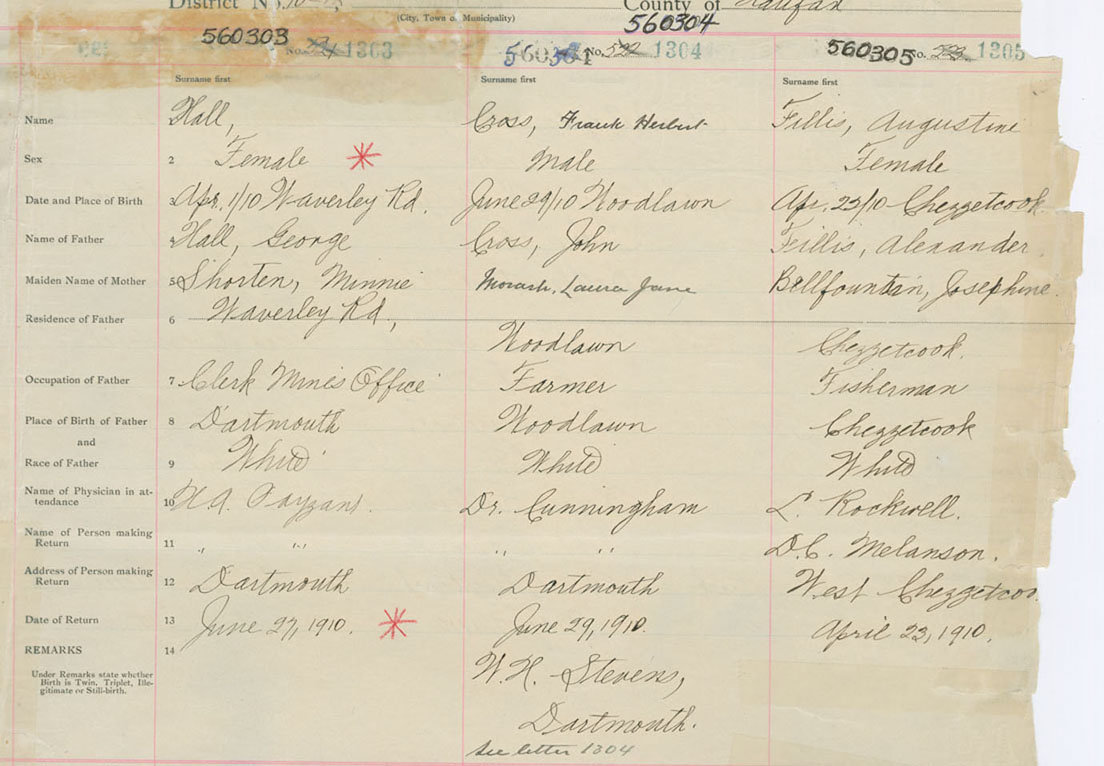 District No. County of Halifax
(City, Town or Municipality)
560303 No. 1303 560304 No. 1304 560305 No. 1305
Surname first Surname first Surname first
Name 1 Hall, Cross, Frank Herbert Fillis, Augustine
Sex 2 Female * Male Female
Date and Place of Birth 3 Apr. 1/10 Waverley Rd. June 29/10 Woodlawn Apr. 23/10 Chezzetcook
Name of Father 4 Hall, George Cross, John Fillis, Alexander
Maiden Name of Mother 5 Shorten, Minnie Morash, Laura Jane Bellfountin, Josephine
Residence of Father 6 Waverley Rd, Woodlawn Chezzetcook.
Occupation of Father 7 Clerk Mines Office Farmer Fisherman
Place of Birth of Father 8 Dartmouth Woodlawn Chezzetcook
and
Race of Father 9 White White White
Name of Physician in at-
tendance 10 Dr. Cunningham L. Rockwell.
Name of Person making
Return 11 " " " " D.C. Melanson.
Address of Person making
Return 12 Dartmouth Dartmouth West Chezzetcoo
Date of Return 13 June 27, 1910. * June 29, 1910. April 23, 1910.
REMARKS 14 W. H. Stevens,
Under Remarks state whether
Birth is Twin. Triplet, Ille-
gitimate or Still-birth.
Dartmouth.
See letter 1304